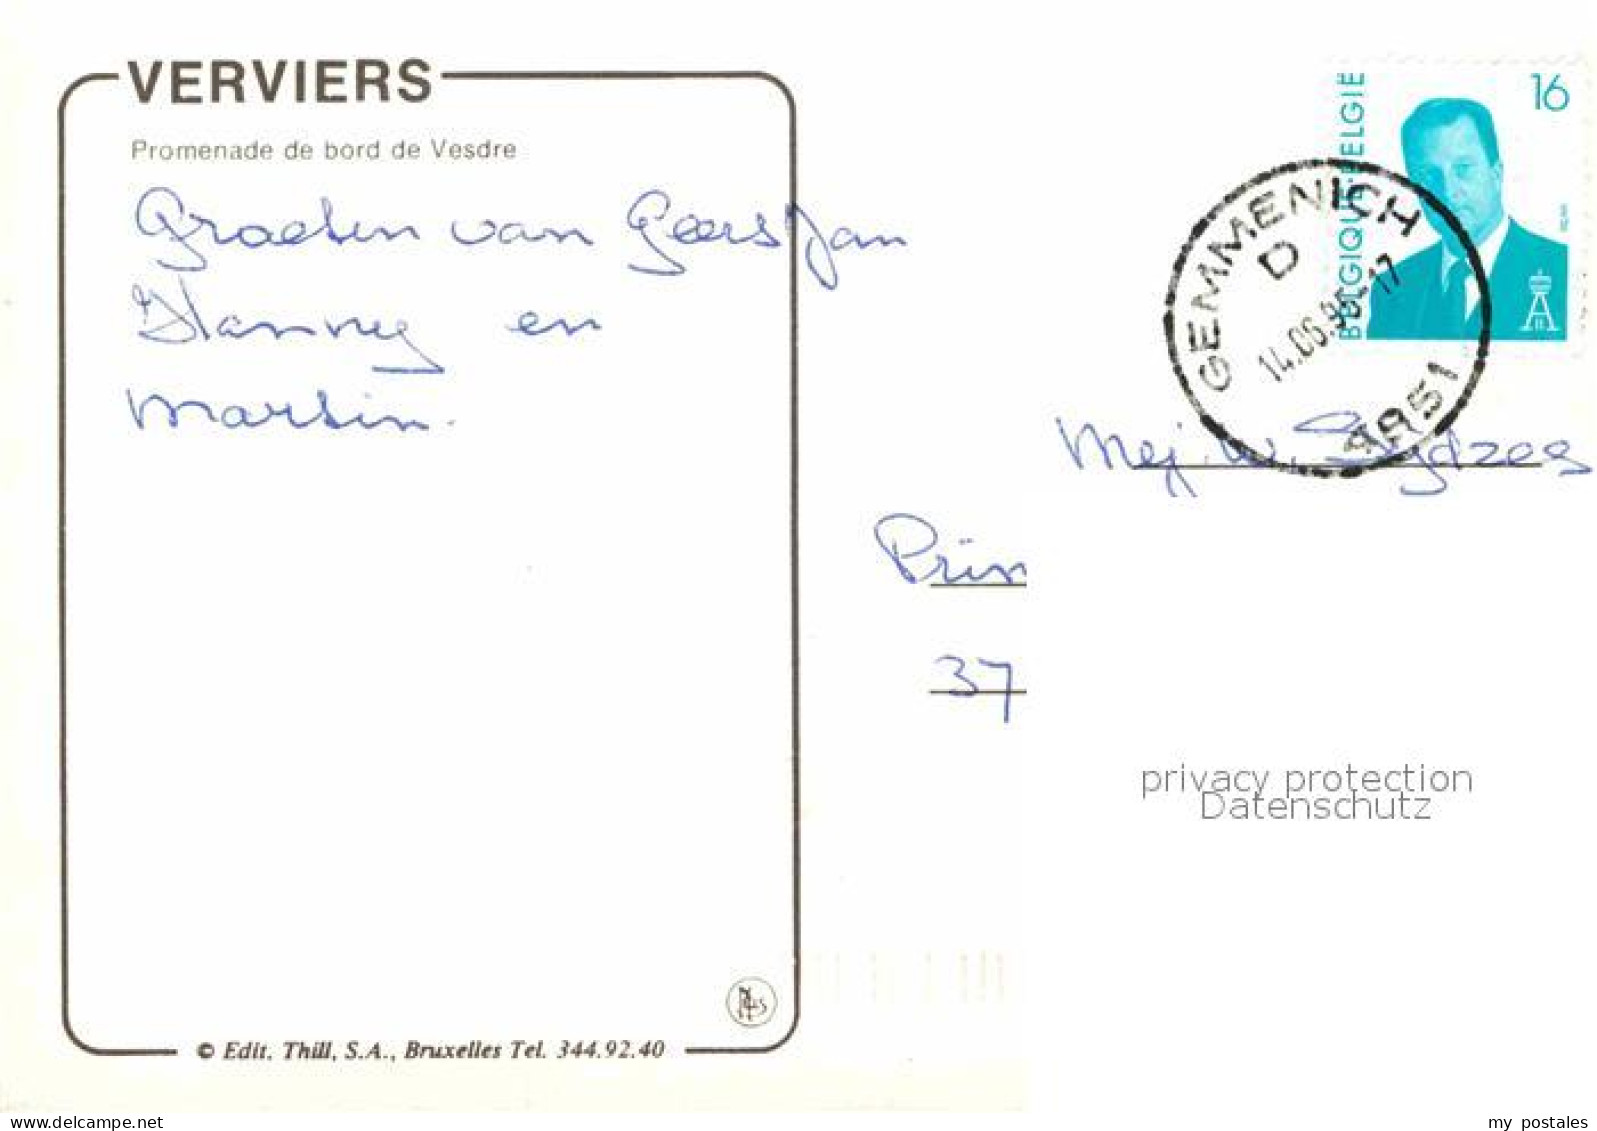 VERVIERS
Promenade de bord de Vesdre
Groeten van Geers Jan
Hanny en
Martin.
16
BELGIQUE-BELGIË
GEMMENICH
D
14.06.95-17
4851
Mej. W.
Prin
37
privacy protection
Datenschutz
© Edit. Thill, S.A., Bruxelles Tel. 344.92.40
delcampe.net
my_postales